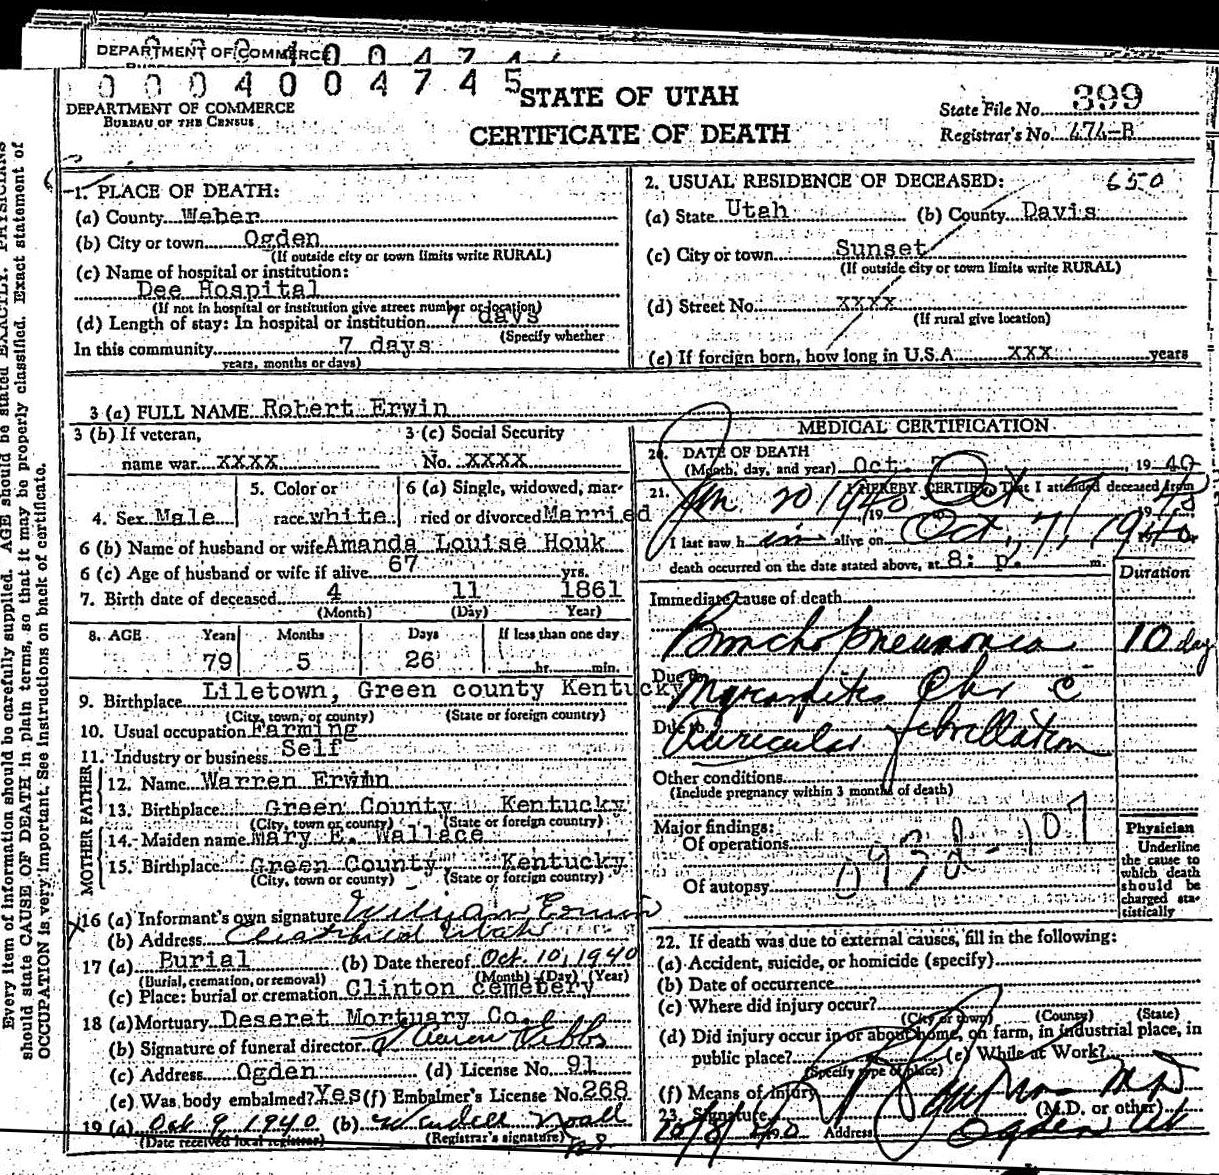 DEPARTMENT OF COMMERCE
0 0 0 4 0 0 4 7 4 5
STATE OF UTAH
CERTIFICATE OF DEATH
DEPARTMENT OF COMMERCE
BUREAU OF THE CENSUS
State File No. 399
Registrar's No. 474-B
Every item of information should be carefully supplied. AGE should be stated EXACTLY. PHYSICIANS
should state CAUSE OF DEATH in plain terms, so that it may be properly classified. Exact statement of
OCCUPATION is very important. See instructions on back of certificate.
1. PLACE OF DEATH:
(a) County Weber
(b) City or town Ogden
(If outside city or town limits write RURAL)
(c) Name of hospital or institution:
Dee Hospital
(If not in hospital or institution give street number or location)
(d) Length of stay: In hospital or institution 7 days
(Specify whether
In this community 7 days
years, months or days)
2. USUAL RESIDENCE OF DECEASED: 650
(a) State Utah (b) County Davis
(c) City or town Sunset
(If outside city or town limits write RURAL)
(d) Street No. xxxx
(If rural give location)
(e) If foreign born, how long in U.S.A. xxx years
3 (a) FULL NAME Robert Erwin
3 (b) If veteran, 3 (c) Social Security
name war xxxx No. xxxx
4. Sex Male 5. Color or race white 6 (a) Single, widowed, married or divorced Married
6 (b) Name of husband or wife Amanda Louise Houk
6 (c) Age of husband or wife if alive 67 yrs.
7. Birth date of deceased 4 11 1861
(Month) (Day) Year)
8. AGE Years Months Days If less than one day
79 5 26 hr. min.
9. Birthplace Liletown, Green county Kentucky
(City, town, or county) (State or foreign country)
10. Usual occupation Farming
11. Industry or business Self
FATHER
12. Name Warren Erwin
13. Birthplace Green County Kentucky
(City, town or county) (State or foreign country)
MOTHER
14. Maiden name Mary E. Wallace
15. Birthplace Green County Kentucky
(City, town or county) (State or foreign country)
16 (a) Informant's own signature William Erwin
(b) Address Clearfield Utah
17 (a) Burial (b) Date thereof Oct. 10, 1940
(Burial, cremation, or removal) (Month) (Day) (Year)
(c) Place: burial or cremation Clinton cemetery
18 (a) Mortuary Deseret Mortuary Co.
(b) Signature of funeral director
(c) Address Ogden (d) License No. 91
(e) Was body embalmed? Yes (f) Embalmer's License No. 268
19 (a) Oct 9, 1940 (b) Wendell Noall
(Date received local registrar) (Registrar's signature)
MEDICAL CERTIFICATION
20. DATE OF DEATH
(Month, day, and year) Oct. 7 1940
21. I HEREBY CERTIFY That I attended deceased from
Jan 20 1940 19 Oct 7 1940
I last saw him alive on Oct, 7, 1940
death occurred on the date stated above, at 8: p. m.
Duration
Immediate cause of death
Bronchopneumonia 10 day
Due to Myocarditis Chr c
Due to Auricular fibrillation
Other conditions
(Include pregnancy within 3 months of death)
Major findings:
Of operations
Of autopsy
093d-107
Physician
Underline
the cause to
which death
should be
charged sta-
tistically
22. If death was due to external causes, fill in the following:
(a) Accident, suicide, or homicide (specify)
(b) Date of occurrence
(c) Where did injury occur?
(City or town) (County) (State)
(d) Did injury occur in or about home, on farm, in industrial place, in
public place? (e) While at Work?
(Specify type of place)
(f) Means of injury
23. Signature M D
(M.D. or other)
10/8/40 Address Ogden Ut